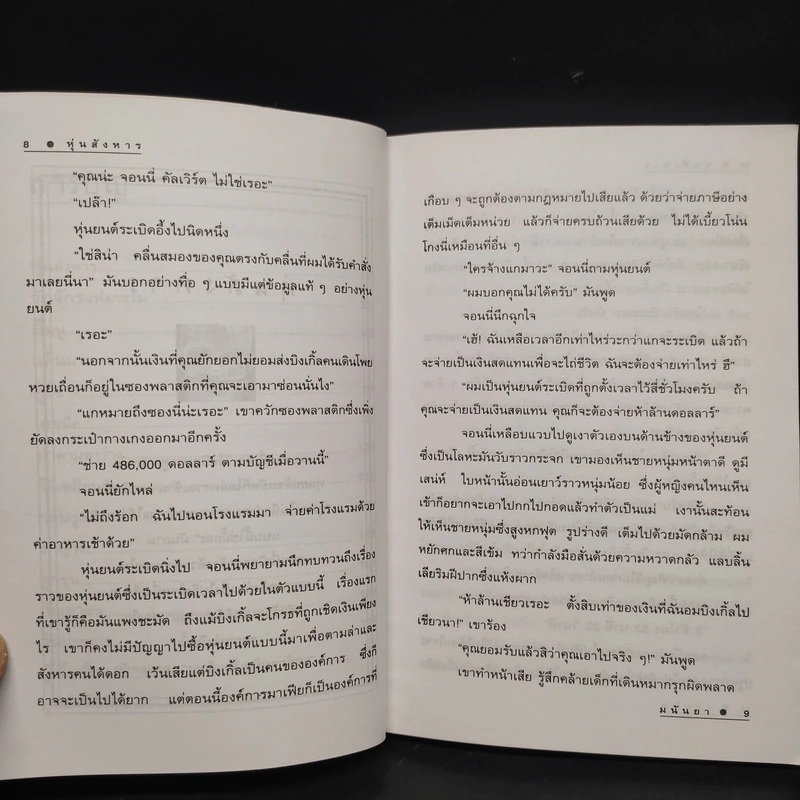 8 ● หุ่นสังหาร
“คุณน่ะ จอนนี่ คัลเวิร์ต ไม่ใช่เรอะ”
“เปล๊า!”
หุ่นยนต์ระเบิดอึ้งไปนิดหนึ่ง
“ใช่สิน่า คลื่นสมองของคุณตรงกับคลื่นที่ผมได้รับคำสั่ง
มาเลยนี่นา” มันบอกอย่างทื่อ ๆ แบบมีแต่ข้อมูลแท้ ๆ อย่างหุ่น
ยนต์
“เรอะ”
“นอกจากนั้นเงินที่คุณยักยอกไม่ยอมส่งบิงเกิ้ลคนเดินโพย
หวยเถื่อนก็อยู่ในซองพลาสติกที่คุณจะเอามาซ่อนนั่นไง”
“แกหมายถึงซองนี่น่ะเรอะ” เขาควักซองพลาสติกซึ่งเพิ่ง
ยัดลงกระเป๋ากางเกงออกมาอีกครั้ง
“ช่าย 486,000 ดอลลาร์ ตามบัญชีเมื่อวานนี้”
จอนนี่ยักไหล่
“ไม่ถึงร้อก ฉันไปนอนโรงแรมมา จ่ายค่าโรงแรมด้วย
ค่าอาหารเช้าด้วย”
หุ่นยนต์ระเบิดนิ่งไป จอนนี่พยายามนึกทบทวนถึงเรื่อง
ราวของหุ่นยนต์ซึ่งเป็นระเบิดเวลาไปด้วยในตัวแบบนี้ เรื่องแรก
ที่เขารู้ก็คือมันแพงชะมัด ถึงแม้บิงเกิ้ลจะโกรธที่ถูกเชิดเงินเพียง
ไร เขาก็คงไม่มีปัญญาไปซื้อหุ่นยนต์แบบนี้มาเพื่อตามล่าและ
สังหารคนได้ดอก เว้นเสียแต่บิงเกิ้ลเป็นคนขององค์การ ซึ่งก็
อาจจะเป็นไปได้ยาก แต่ตอนนี้องค์การมาเฟียก็เป็นองค์การที่
เกือบ ๆ จะถูกต้องตามกฎหมายไปเสียแล้ว ด้วยว่าจ่ายภาษีอย่าง
เต็มเม็ดเต็มหน่วย แล้วก็จ่ายครบถ้วนเสียด้วย ไม่ได้เบี้ยวโน่น
โกงนี่เหมือนที่อื่น ๆ
“ใครจ้างแกมาวะ” จอนนี่ถามหุ่นยนต์
“ผมบอกคุณไม่ได้ครับ” มันพูด
จอนนี่นึกฉุกใจ
“เฮ้! ฉันเหลือเวลาอีกเท่าไหร่วะกว่าแกจะระเบิด แล้วถ้า
จะจ่ายเป็นเงินสดแทนเพื่อจะไถ่ชีวิต ฉันจะต้องจ่ายเท่าไหร่ ฮึ”
“ผมเป็นหุ่นยนต์ระเบิดที่ถูกตั้งเวลาไว้สี่ชั่วโมงครับ ถ้า
คุณจะจ่ายเป็นเงินสดแทน คุณก็จะต้องจ่ายห้าล้านดอลลาร์”
จอนนี่เหลือบแวบไปดูเงาตัวเองบนด้านข้างของหุ่นยนต์
ซึ่งเป็นโลหะมันวับราวกระจก เขามองเห็นชายหนุ่มหน้าตาดี ดูมี
เสน่ห์ ใบหน้านั้นอ่อนเยาว์ราวหนุ่มน้อย ซึ่งผู้หญิงคนไหนเห็น
เข้าก็อยากจะเอาไปกกไปกอดแล้วทำตัวเป็นแม่ เงานั้นสะท้อน
ให้เห็นชายหนุ่มซึ่งสูงหกฟุต รูปร่างดี เต็มไปด้วยมัดกล้าม ผม
หยักศกและสีเข้ม ทว่ากำลังมือสั่นด้วยความหวาดกลัว แลบลิ้น
เลียริมฝีปากซึ่งแห้งผาก
“ห้าล้านเชียวเรอะ ตั้งสิบเท่าของเงินที่ฉันอมบิงเกิ้ลไป
เชียวนา!” เขาร้อง
“คุณยอมรับแล้วสิว่าคุณเอาไปจริง ๆ!” มันพูด
เขาทำหน้าเสีย รู้สึกคล้ายเด็กที่เดินหมากรุกผิดพลาด
มนันยา ● 9